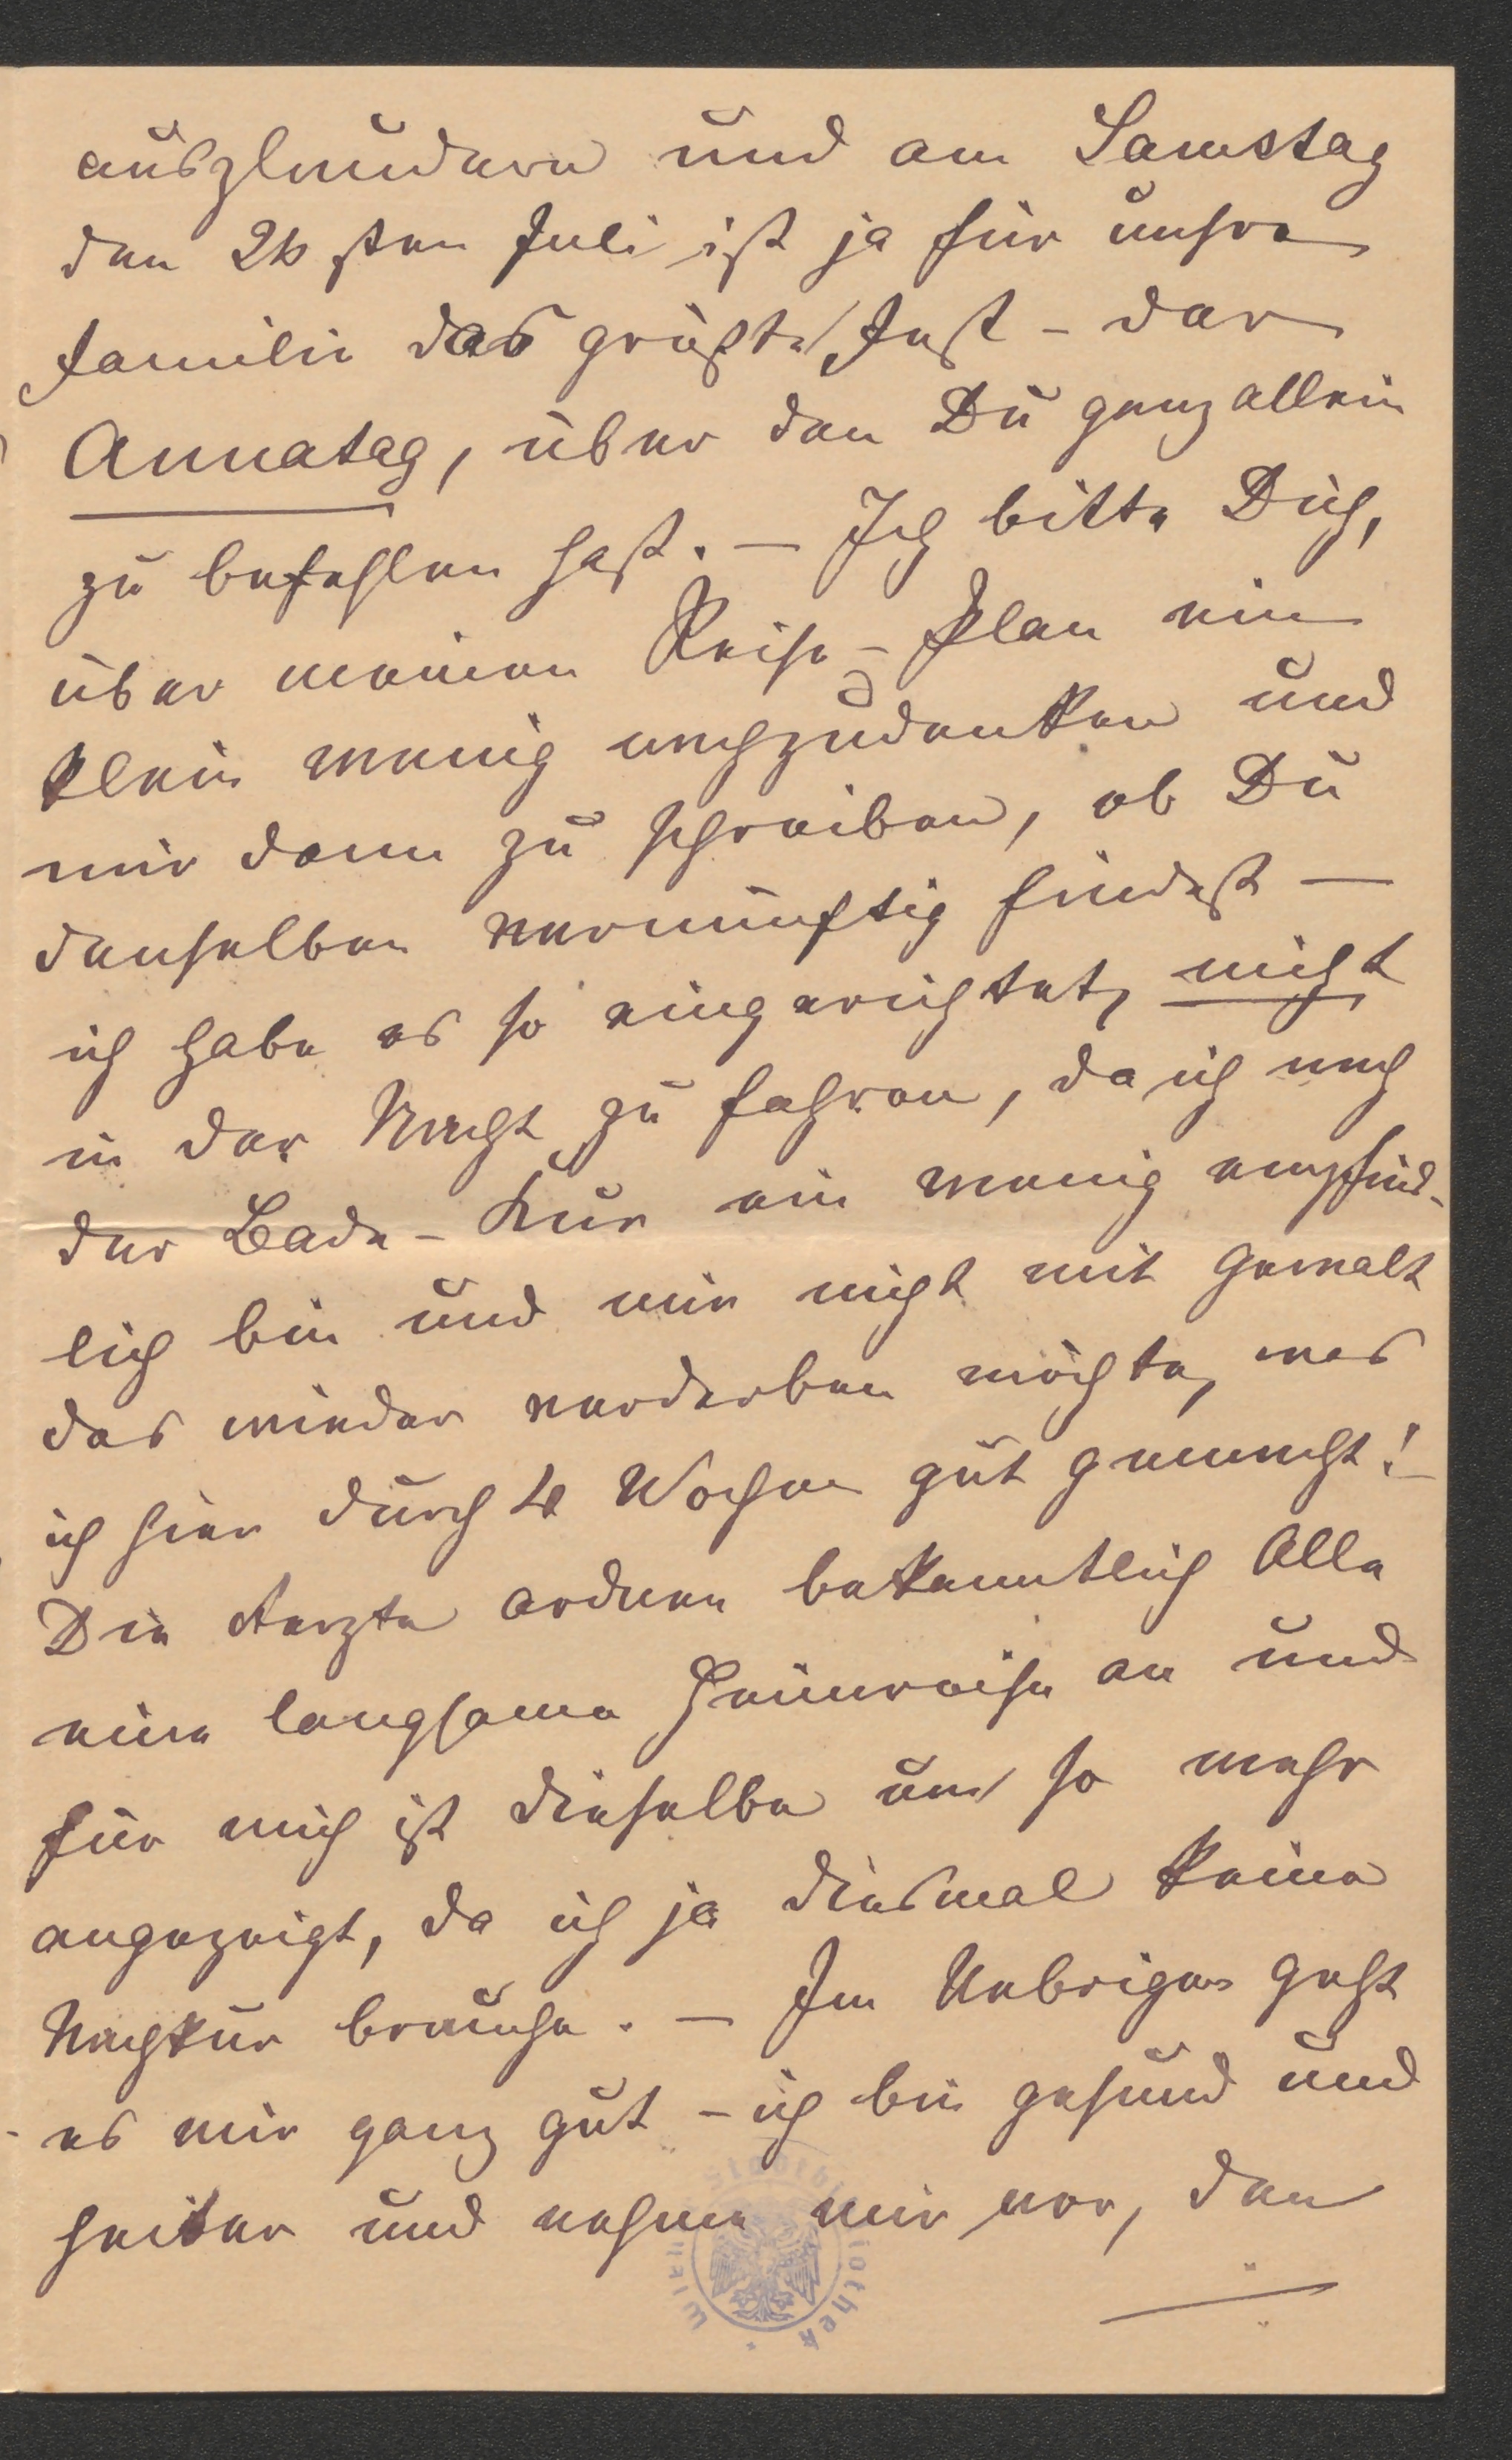 ausplaudern und am Samstag
den 26sten Juli ist ja für unsre
Familie das größte Fest - der
Annatag, über den Du ganz allein
zu befehlen hast. — Ich bitte Dich,
über meinen Reise-Plan ein
klein wenig nachzudenken und
mir dann zu schreiben, ob Du
denselben vernünftig findest —
ich habe es so eingerichtet, nicht
in der Nacht zu fahren, da ich nach
der Bade-Kur ein wenig empfind-
lich bin und mir nicht mit Gewalt
das wieder verderben möchte, was
ich hier durch 4 Wochen gut gemacht! -
Die Aerzte ordnen bekanntlich Alle
eine langsame Heimreise an und
für mich ist dieselbe um so mehr
angezeigt, da ich ja diesmal keine
Nachkur brauche. — Im Uebrigen geht
es mir ganz gut - ich bin gesund und
heiter und nehme mir vor, den
Wiener Stadtbibliothek